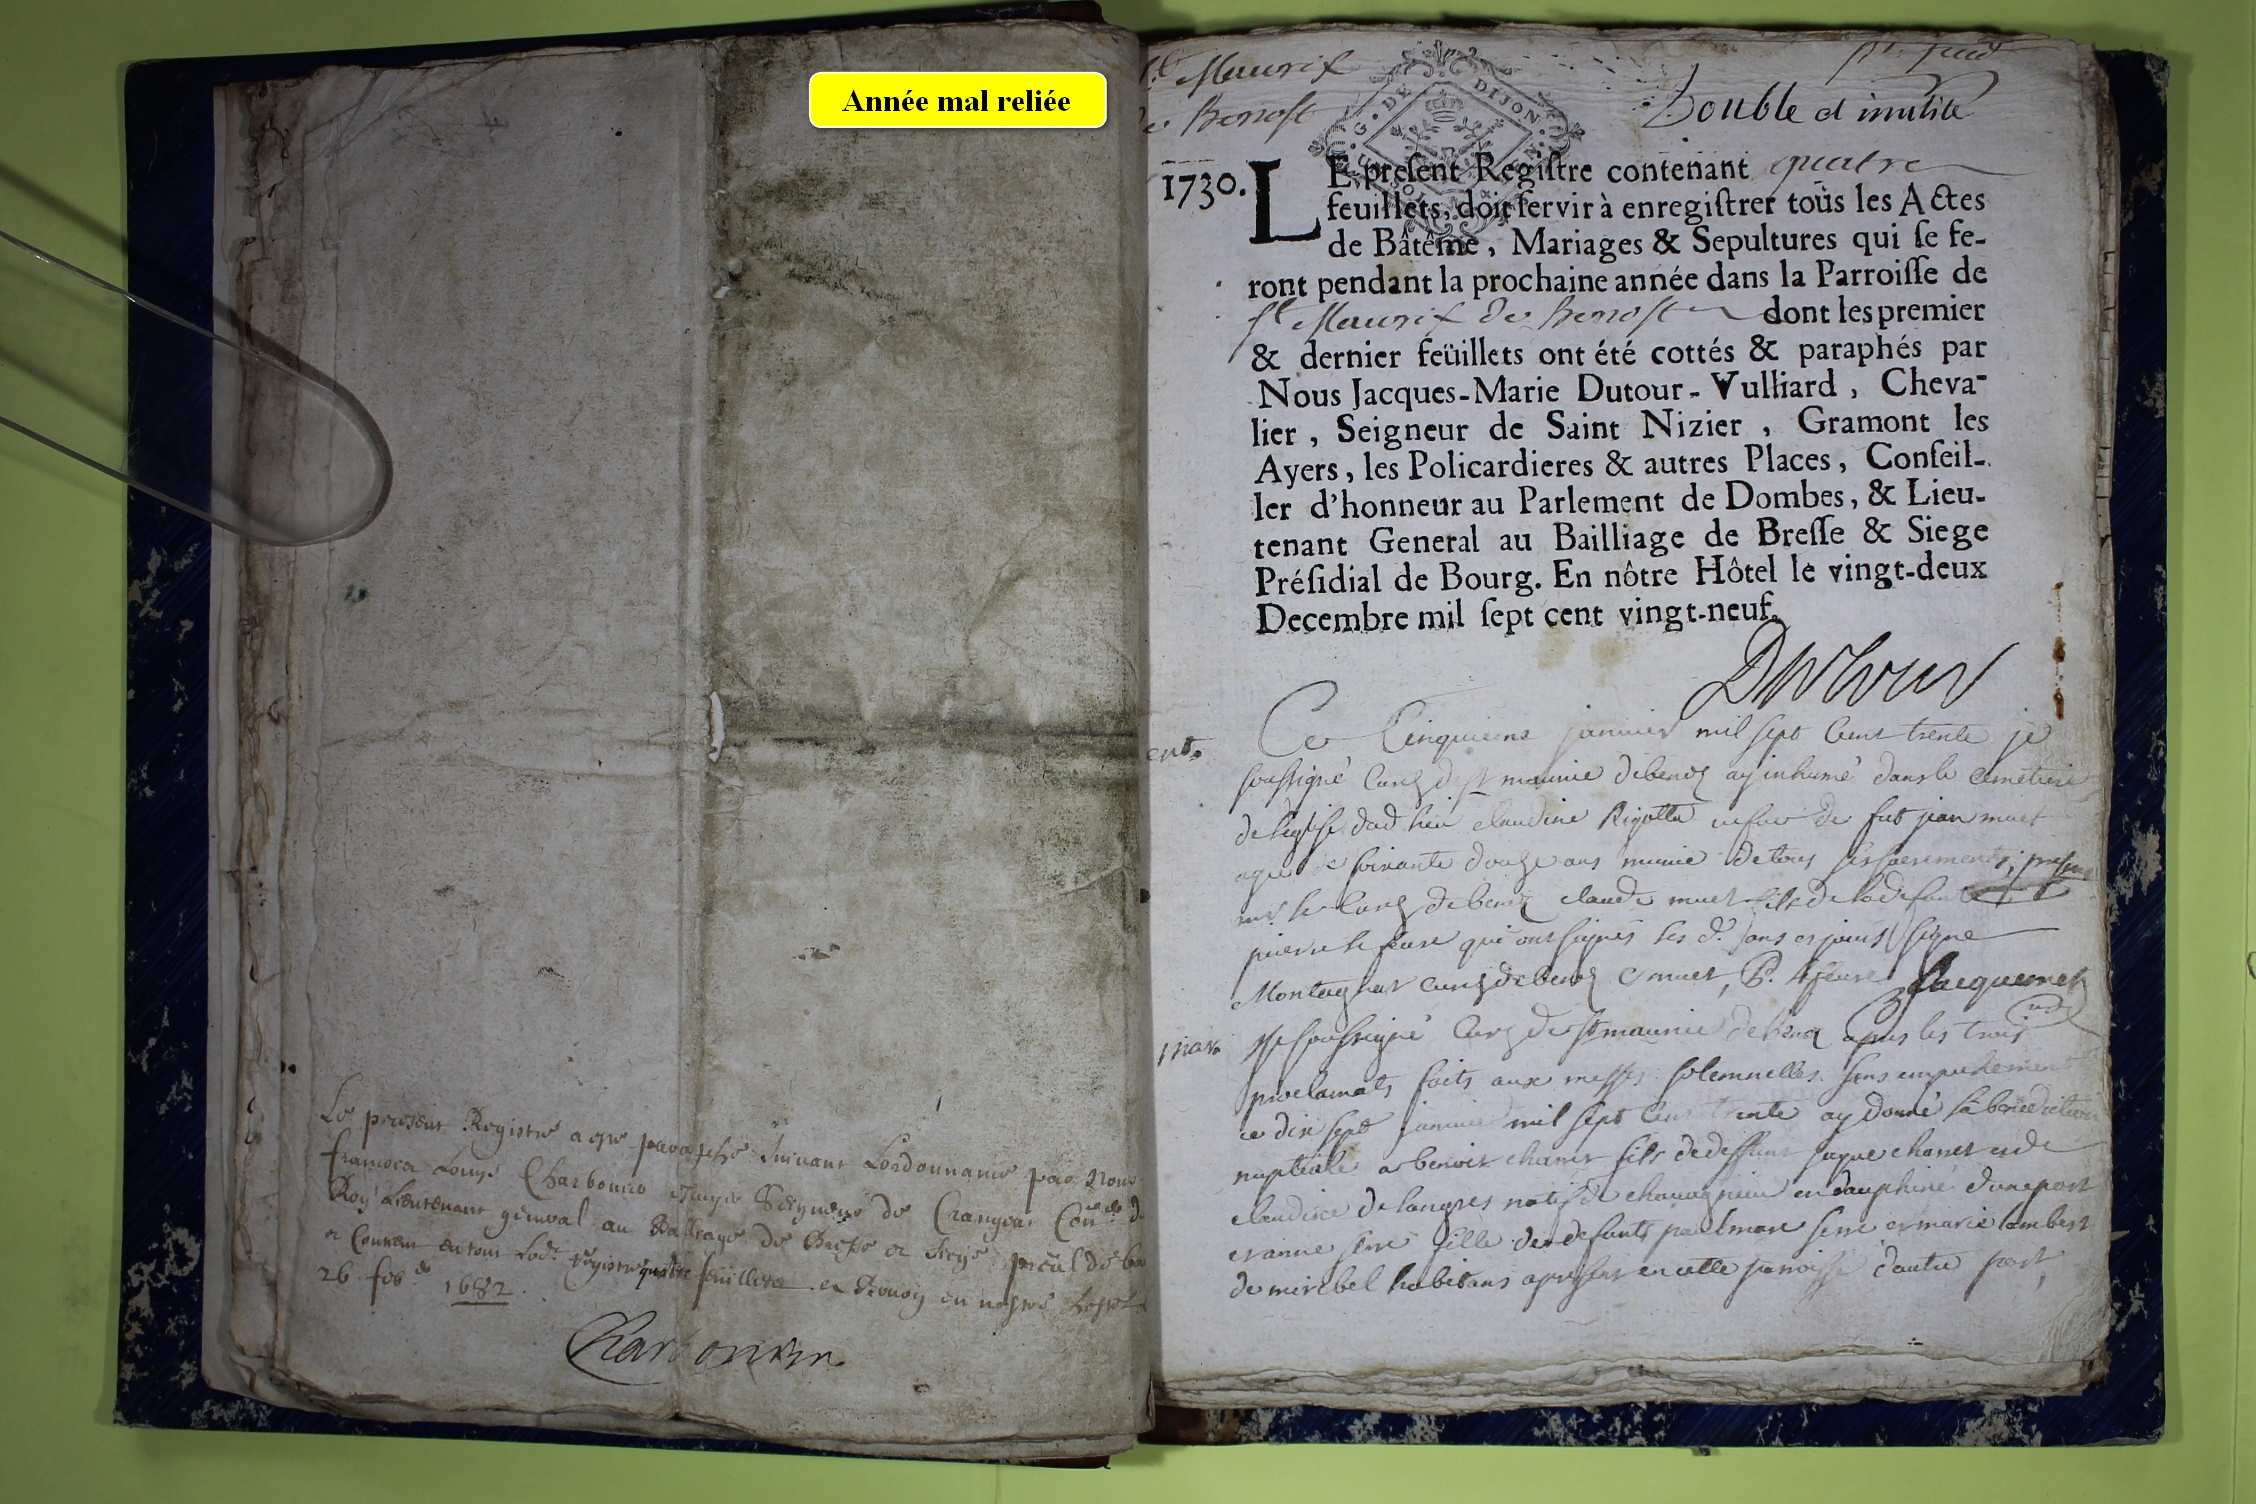 Année mal reliée
Le present Registre a este paraphé suivant Lordonnance par Nous
Lieutenant general au Bailliage de Bresse et siege
feuillets
26 feb 1682
Charbonnier
St Maurix
de Benost
Double et inutile
G. DE DIJON
1730. LE present Registre contenant quatre
feuillets, doit servir à enregistrer tous les Actes
de Bâtême, Mariages & Sepultures qui se fe-
ront pendant la prochaine année dans la Parroisse de
St Maurix de Benost dont les premier
& dernier feüillets ont été cottés & paraphés par
Nous Jacques-Marie Dutour-Vulliard, Cheva-
lier, Seigneur de Saint Nizier, Gramont les
Ayers, les Policardieres & autres Places, Conseil-
ler d'honneur au Parlement de Dombes, & Lieu-
tenant General au Bailliage de Bresse & Siege
Présidial de Bourg. En nôtre Hôtel le vingt-deux
Decembre mil sept cent vingt-neuf.
Dutour
Ce Cinquieme janvier mil sept Cent trente je
soussigné Curé de st maurice de benost ay inhumé dans le cemetiere
de l'eglise dud lieu claudine Rigollet vefve de fut jean muet
agee de soixante douze ans munie de tous ses sacrements, presens
mr le Curé de benost claude muet fils de la defunte
pierre le feure qui ont signés les d. ans et jours signé
Montagnat curé de benost C muet, P. lefeure Jacquemet
mar. Je soussigné Curé de st maurice de benost apres les trois
proclamats faits aux messes solemnelles sans empechement
ce dix sept janvier mil sept Cent trente ay donné la benediction
nuptiale a benoit chanet fils de deffunt jaque chanet et de
claudine de langres natif de chavagnieu en dauphiné d'une part
et anne serre fille des defunts paulmare serre et marie lambert
de miribel habitans apresent en cette paroisse d'autre part,